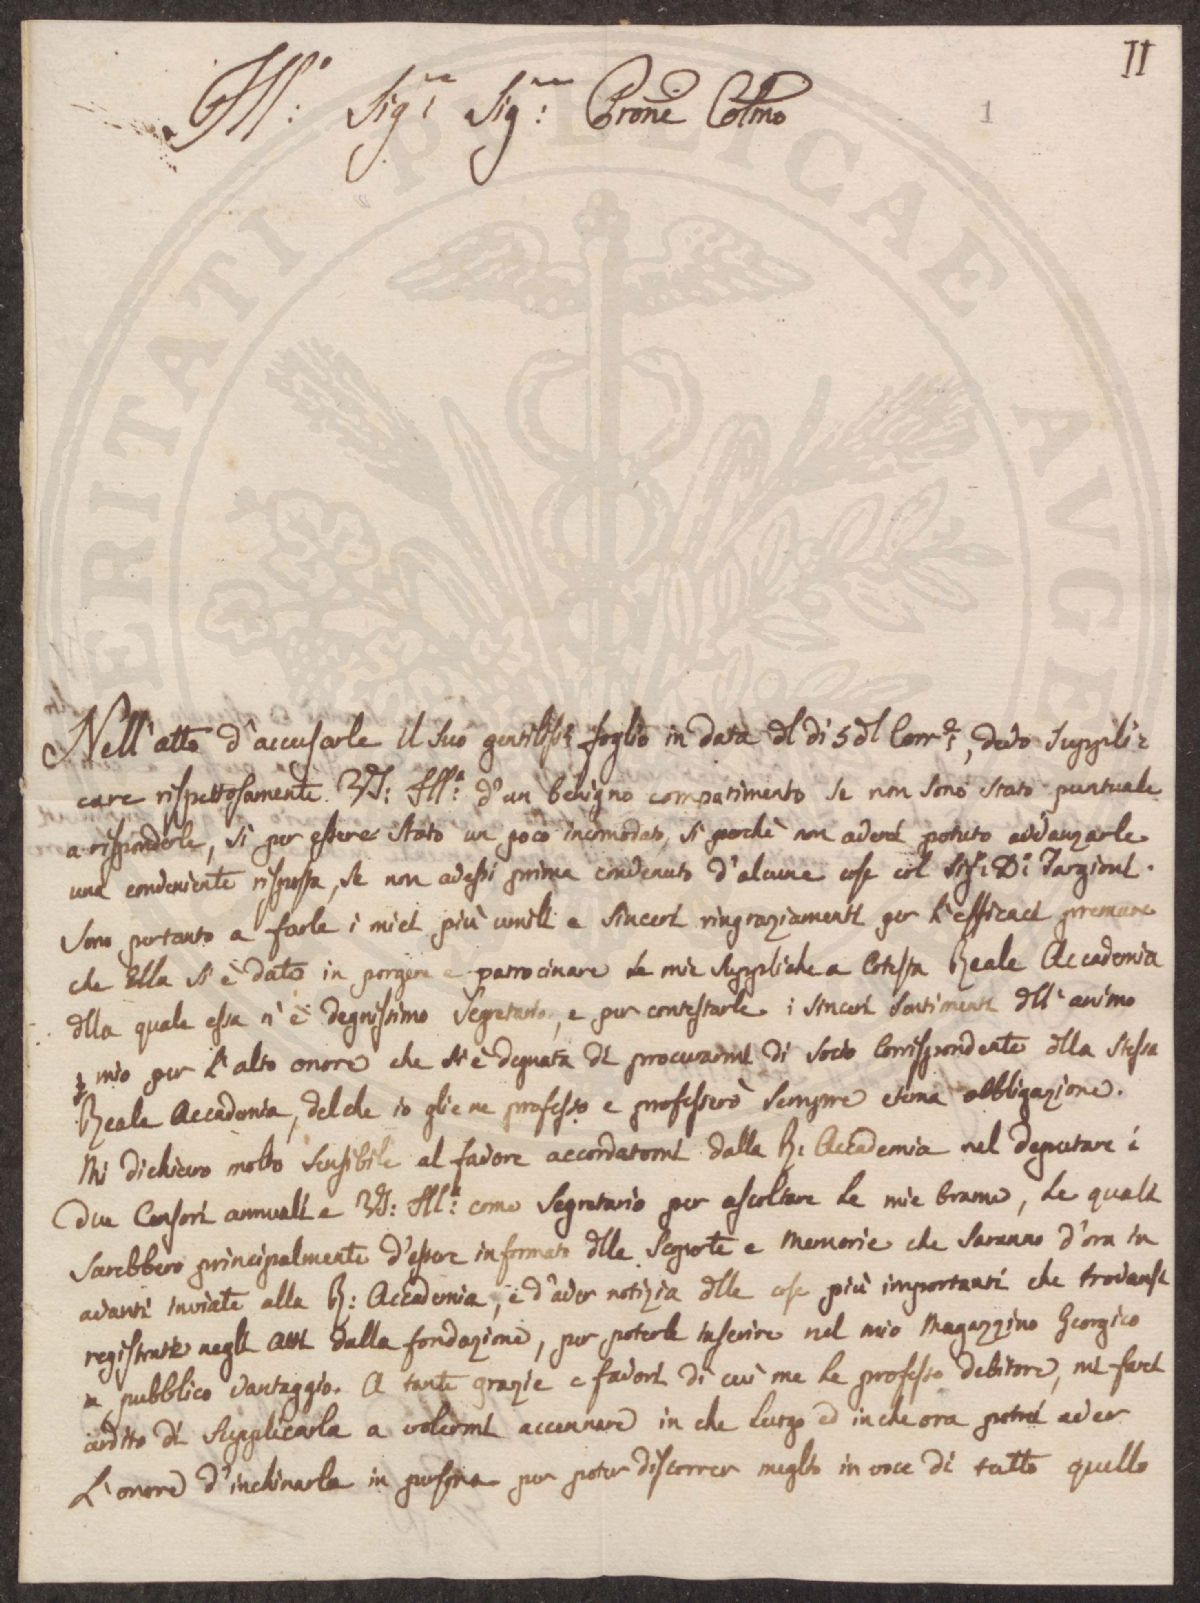 II
1
Ill:o Sig:re Sig:re Prone Colmo
Nell'atto d'accusarle il suo gentiliss:o foglio in data dl di 5 dl Corr:e, devo suppli=
care rispettosamente VS: Ill:a d'un benigno compatimento se non sono stato puntuale
a risponderle, sì per essere stato un poco incomodato, sì perchè non averei potuto avvanzarle
una conveniente risposta, se non avessi prima convenuto d'alcune cose col Sig: D: Targioni.
Sono pertanto a farle i miei più umili e sinceri ringraziamenti per l'efficaci premure
che Ella si è dato in porgere e patrocinare le mie suppliche a cotesta Reale Accademia
dlla quale essa n'è degnissimo Segretario, e per contestarle i sinceri sentimenti dll'animo
mio per l'alto onore che si è degnata di procurarmi di Socio Corrispondente dlla stessa
Reale Accademia, del che io gliene professo e professerò sempre eterna obbligazione.
Mi dichiaro molto sensibile al favore accordatomi dalla R: Accademia nel deputare i
due Censori annuali e VS: Ill:a come Segretario per ascoltare le mie brame, le quali
sarebbero principalmente d'essere informato dlle Scoperte e Memorie che saranno d'ora in
avanti inviate alla R: Accademia, e d'aver notizia dlle cose più importanti che trovansi
registrate negli Atti dalla fondazione, per poterle inserire nel mio Magazzino Georgico
a pubblico vantaggio. A tante grazie e favori di cui me le professo debitore, mi farei
ardito di supplicarla a volermi accennare in che luogo ed in che ora potrei aver
l'onore d'inchinarla in persona per poter discorrer meglio in voce di tutto quello
VERITATI PVBLICAE AVGE